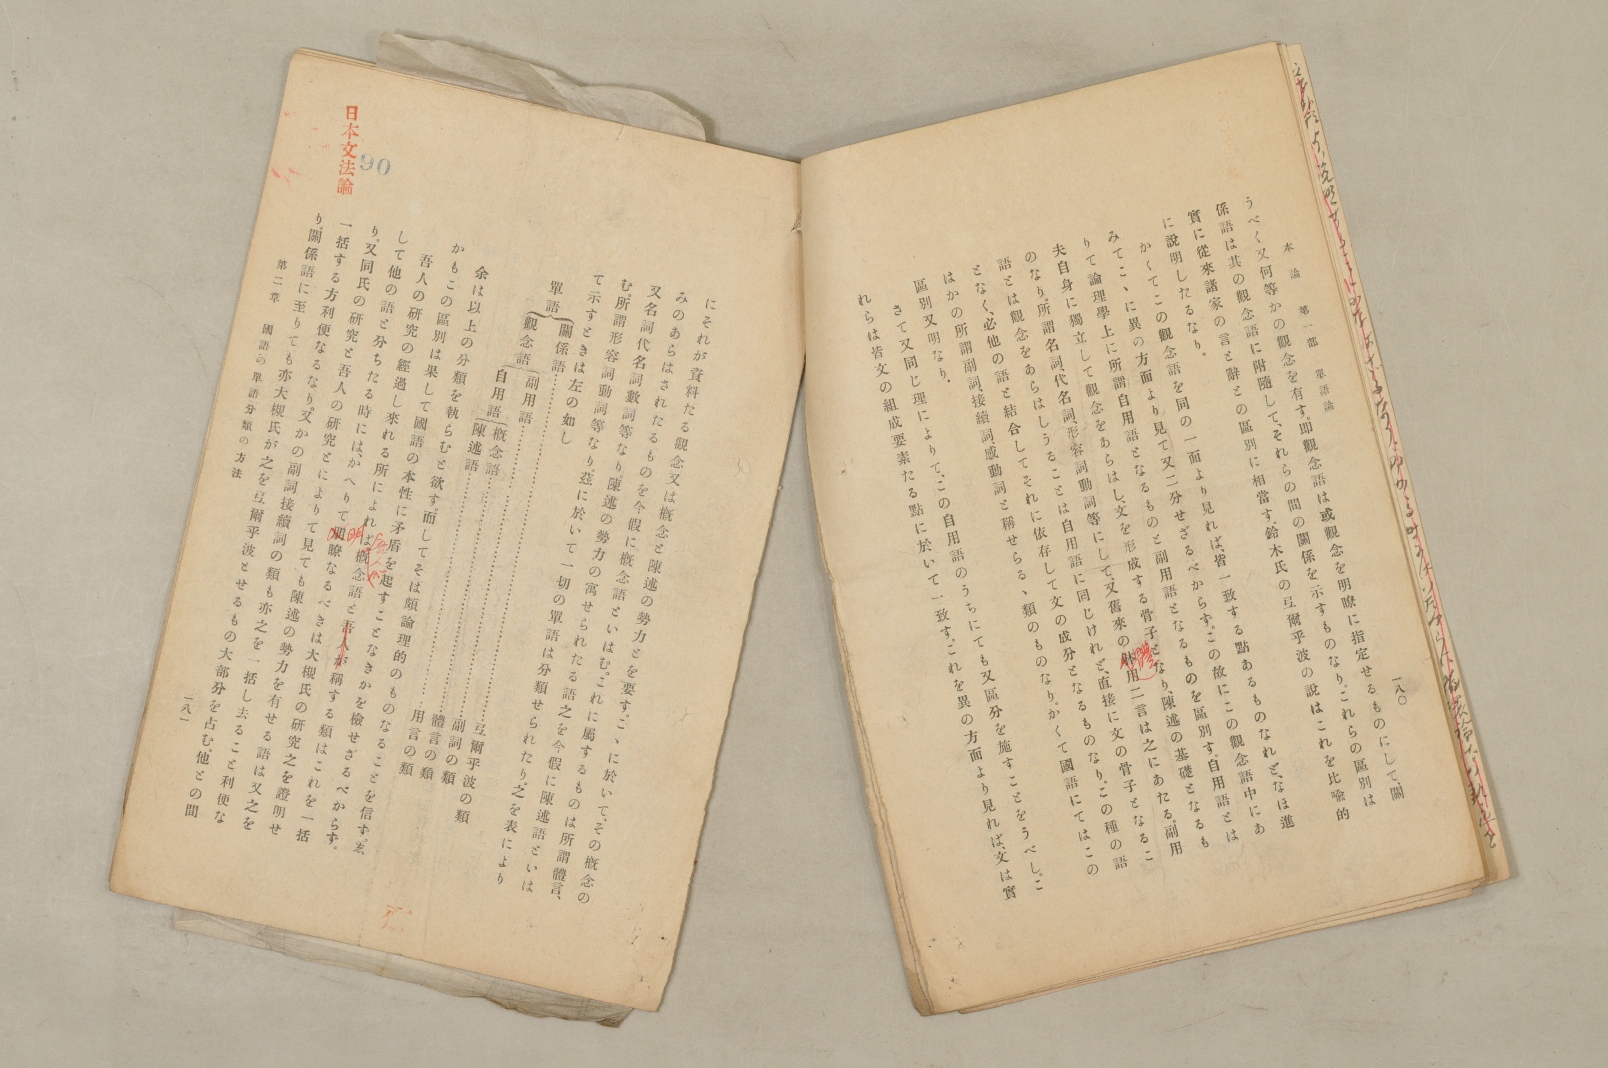 本論 第一部 單語論
一八〇
うべく又何等かの觀念を有す。卽觀念語は或觀念を明瞭に指定せるものにして、關
係語は其の觀念語に附隨して、それらの間の關係を示すものなり。これらの區別は
實に從來諸家の言と辭との區別に相當す。鈴木氏の弖爾乎波の說はこれを比喩的
に說明したるなり。
かくてこの觀念語を同の一面より見れば、皆一致する點あるものなれど、なほ進
みてこゝに異の方面より見て又二分せざるべからず。この故にこの觀念語中にあ
りて論理學上に所謂自用語となるものと副用語となるものを區別す。自用語とは
夫自身に獨立して觀念をあらはし、文を形成する骨子となり、陳述の基礎となるも
のなり。所謂名詞、代名詞、形容詞動詞等にして、又舊來の體用二言は之にあたる。副用
語とは觀念をあらはしうることは自用語に同じけれど、直接に文の骨子となるこ
となく、必他の語と結合してそれに依存して文の成分となるものなり。この種の語
はかの所謂副詞、接續詞、感動詞と稱せらるゝ類のものなり。かくて國語にてはこの
區別又明なり。
さて又同じ理によりて、この自用語のうちにても又區分を施すことをうべし。こ
れらは皆文の組成要素たる點に於いて一致す。これを異の方面より見れば、文は實
にそれが資料たる觀念又は概念と陳述の勢力とを要す。こゝに於いて、その概念の
みのあらはされたるものを今假に概念語といはむ。これに屬するものは所謂體言、
又名詞代名詞數詞等なり。陳述の勢力の寓せられたる語之を今假に陳述語といは
む。所謂形容詞動詞等なり。玆に於いて一切の單語は分類せられたり。之を表により
て示すときは左の如し
單語 關係語……弖爾乎波の類
觀念語 副用語……副詞の類
自用語 概念語……體言の類
陳述語……用言の類
余は以上の分類を執らむと欲す。而してそは頗論理的のものなることを信ず。さ、
かもこの區別は果して國語の本性に矛盾を起すことなきかを檢せざるべからず。
吾人の研究の經過し來れる所によれば、概念語と吾人が稱する類はこれを一括
して他の語と分ちたる時には、かへりて明瞭なるべきは大槻氏の研究之を證明せ
り。又同氏の研究と吾人の研究とによりて見ても陳述の勢力を有せる語は又之を
一括する方利便なるなり。又かの副詞接續詞の類も亦之を一括し去ること利便な
り。關係語に至りても亦大槻氏が之を弖爾乎波とせるもの大部分を占む。他との間
第二章 國語の單語分類の方法
一八一
日本文法論
90